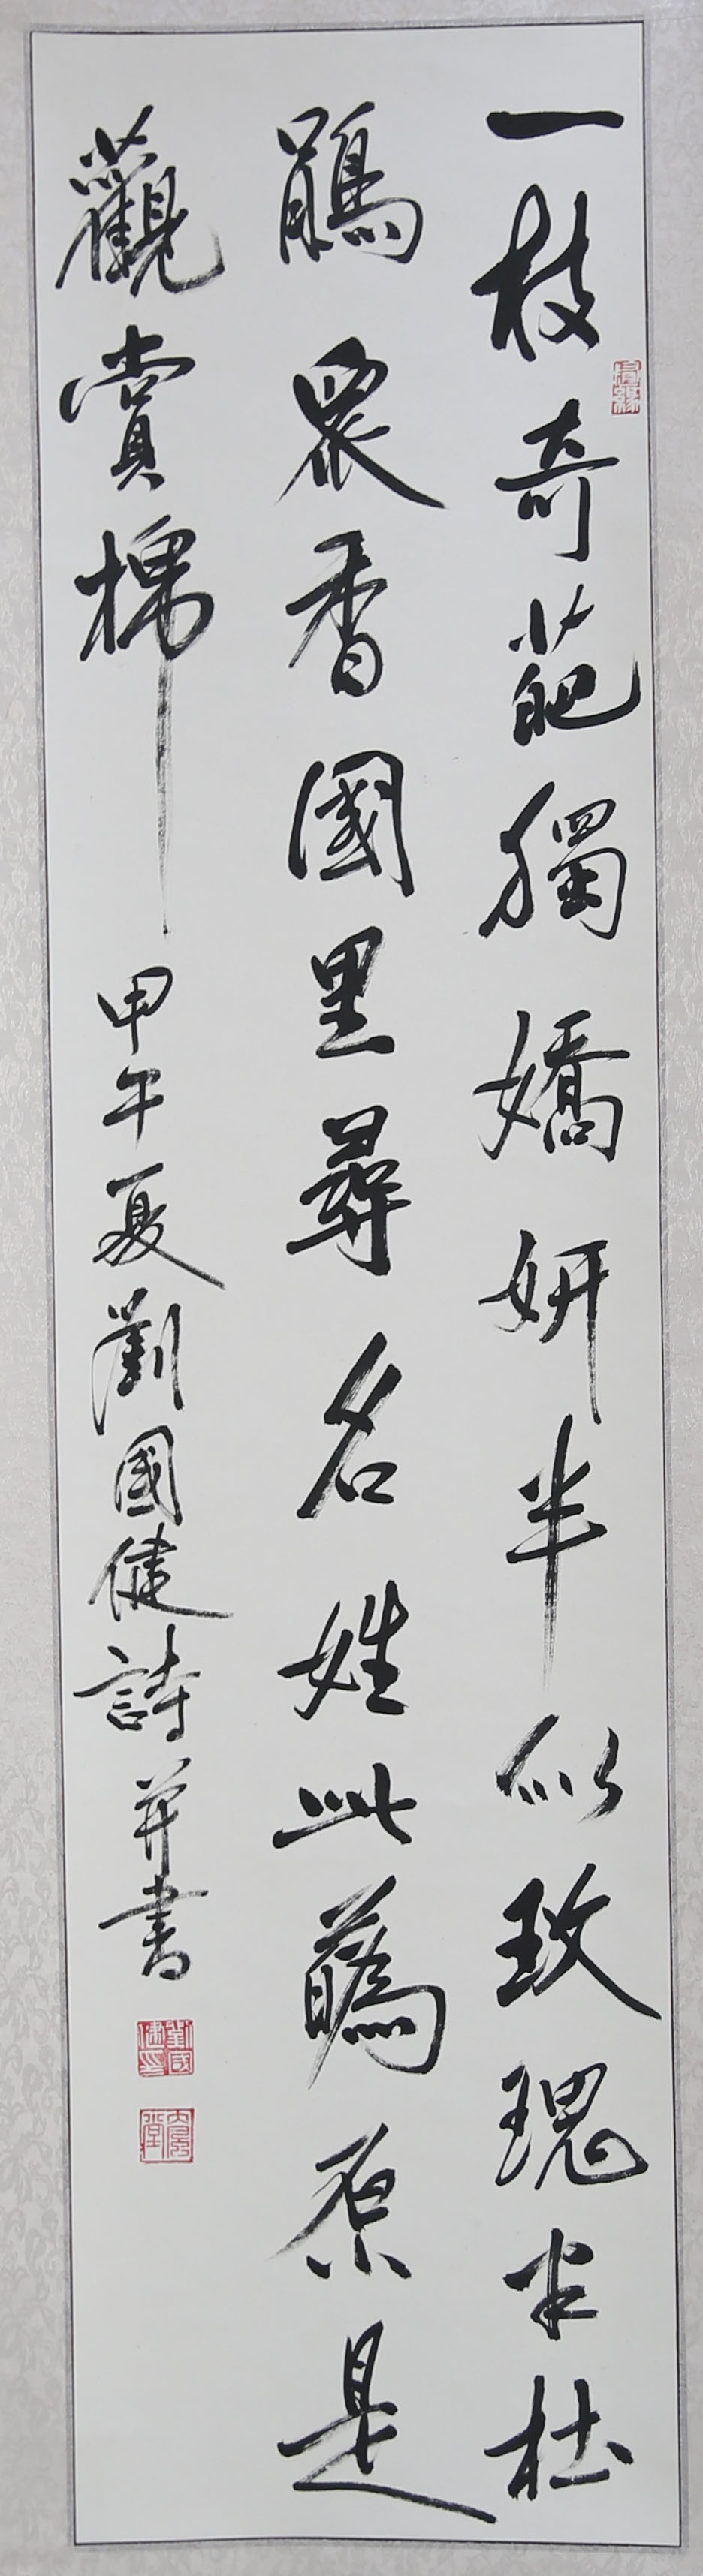 一枝奇葩獨嬌妍半似玫瑰半杜
鵑眾香國里尋名姓此蘤原是
觀賞棉 甲午夏劉國健詩并書
劉國健印